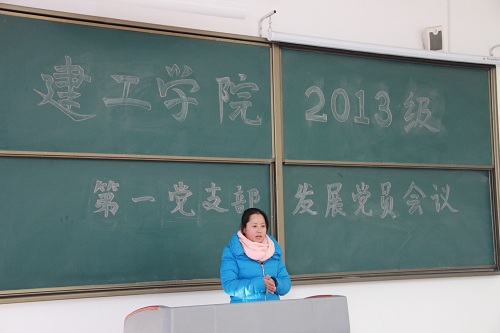 建工学院 2013级
第一党支部 发展党员会议